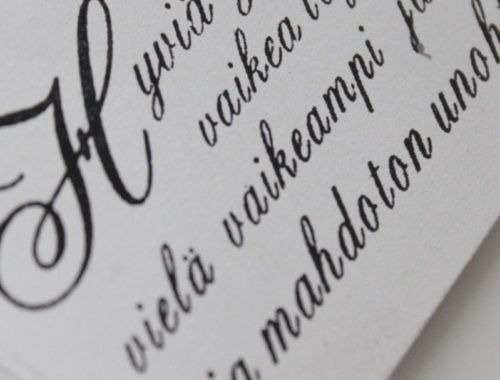 Hyviä
vaikea
vielä vaikeampi
mahdoton